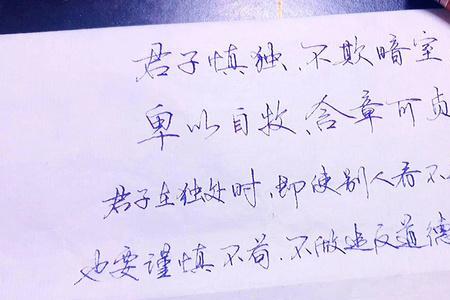 君子慎独、不欺暗室
卑以自牧、含章可贞
君子在独处时,即使别人看不
也要谨慎不苟、不做违反道德